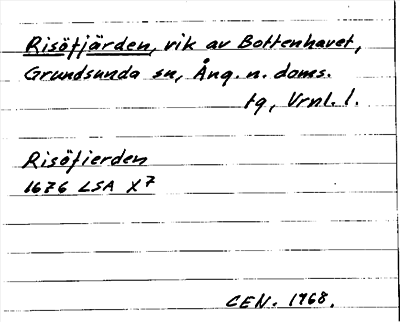 Risöfjärden, vik av Bottenhavet,
Grundsunda sn, Ång. n. doms.
tg, Vrnl. l.
Risöfierden
1676 LSA X7
CEN. 1968.